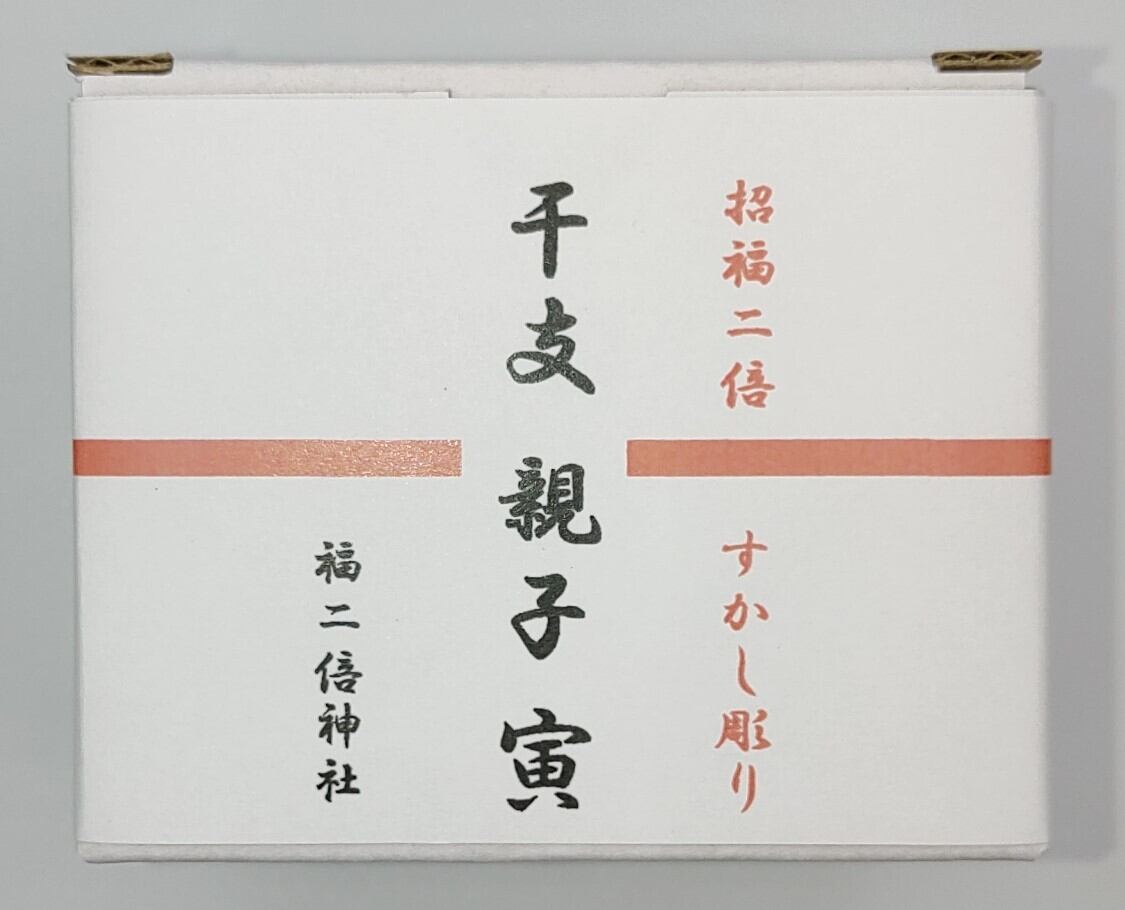 招福二倍 すかし彫り
干支 親子 寅
福二倍神社